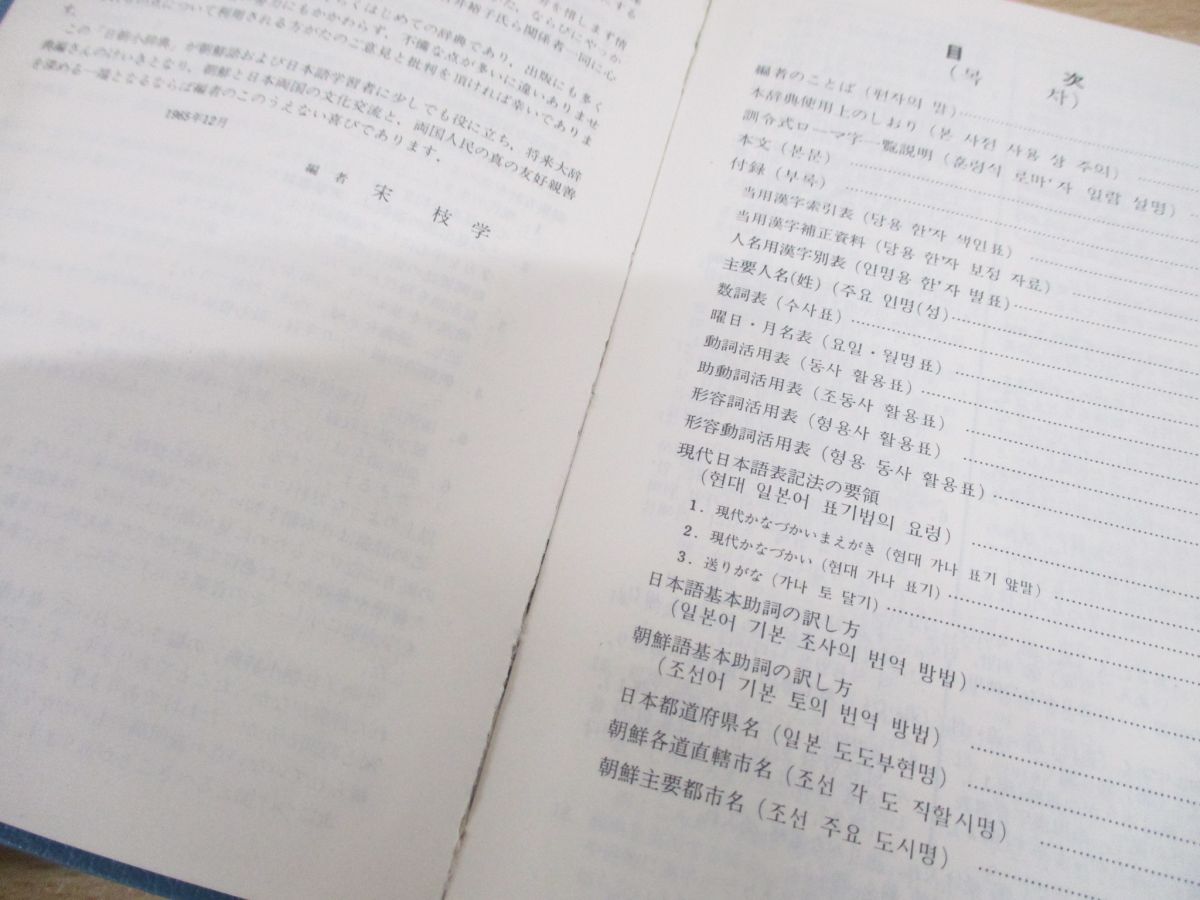 くはじめての辞典であり、出版にも多く
努力にもかかわらず、不備な点が多いに違いありませ
について利用される方がたのご意見と批判を頂ければ幸いでありま
す。
この「日朝小辞典」が朝鮮語および日本語学習者に少しでも役に立ち、将来大辞
典編さんのけいきとなり、朝鮮と日本両国の文化交流と、両国人民の真の友好親善
を深める一環となるならば編者のこのうえない喜びであります。
1965年12月
編者 宋枝学
目次
(목 차)
編者のことば (편자의 말)
本辞典使用上のしおり (본 사전 사용 상 주의)
訓令式ローマ字一覧説明 (훈령식 로마'자 일람 설명)
本文 (본문)
付録 (부록)
当用漢字索引表 (당용 한'자 색인표)
当用漢字補正資料 (당용 한'자 보정 자료)
人名用漢字別表 (인명용 한'자 별표)
主要人名(姓) (주요 인명(성)
数詞表 (수사표)
曜日・月名表 (요일・월명표)
動詞活用表 (동사 활용표)
助動詞活用表 (조동사 활용표)
形容詞活用表 (형용사 활용표)
形容動詞活用表 (형용 동사 활용표)
現代日本語表記法の要領
(현대 일본어 표기법의 요령)
1. 現代かなづかいまえがき (현대 가나 표기 앞말)
2. 現代かなづかい (현대 가나 표기)
3. 送りがな (가나 토 달기)
日本語基本助詞の訳し方
(일본어 기본 조사의 번역 방법)
朝鮮語基本助詞の訳し方
(조선어 기본 토의 번역 방법)
日本都道府県名 (일본 도도부현명)
朝鮮各道直轄市名 (조선 각 도 직할시명)
朝鮮主要都市名 (조선 주요 도시명)